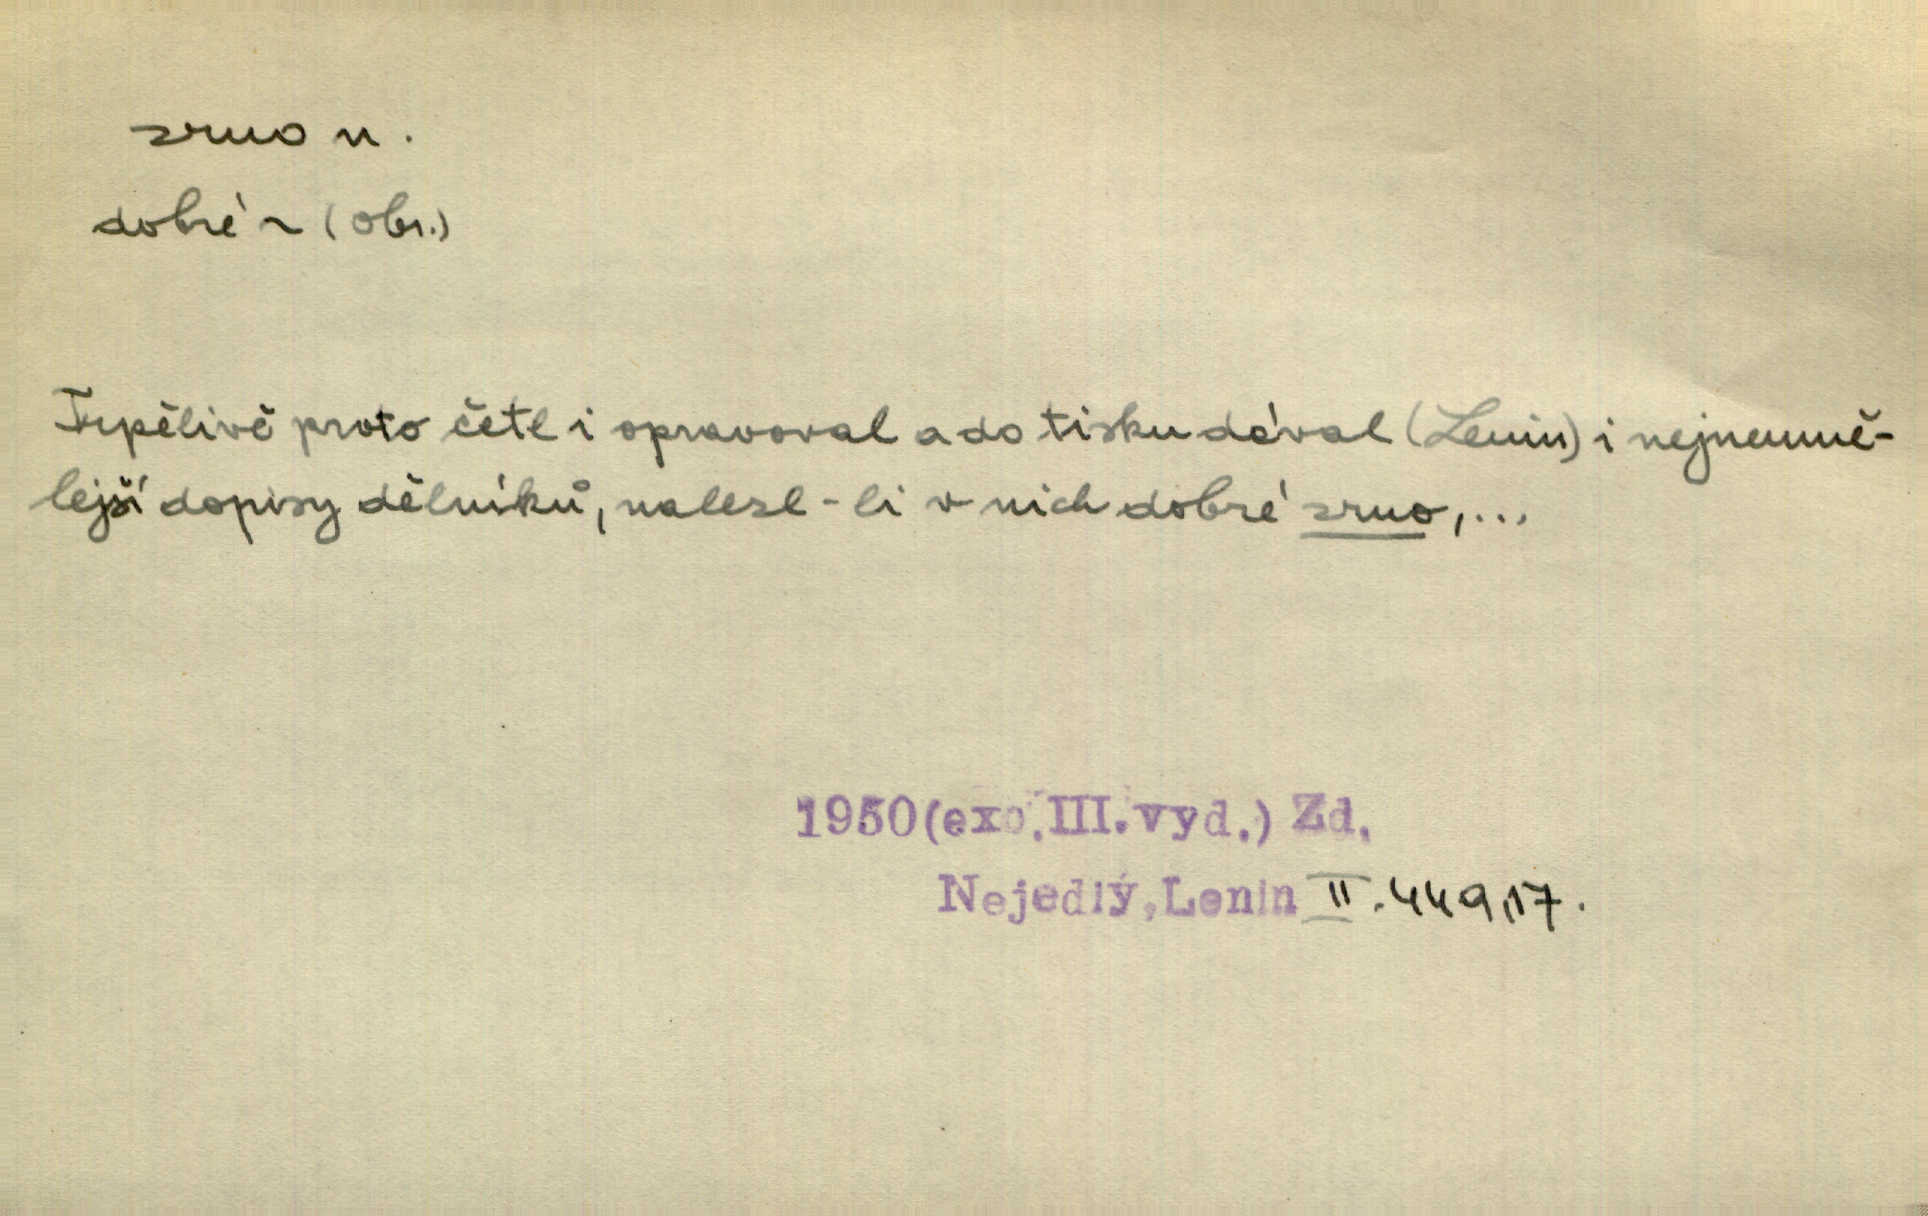 zrno n.
dobré ~ (obr.)
Trpělivě proto četl i opravoval a do tisku dával (Lenin) i nejneumě-
lejší dopisy dělníků, nalezl-li v nich dobré zrno,...
1950(exc.III.vyd.) Zd.
Nejedlý,Lenin II.449,17.